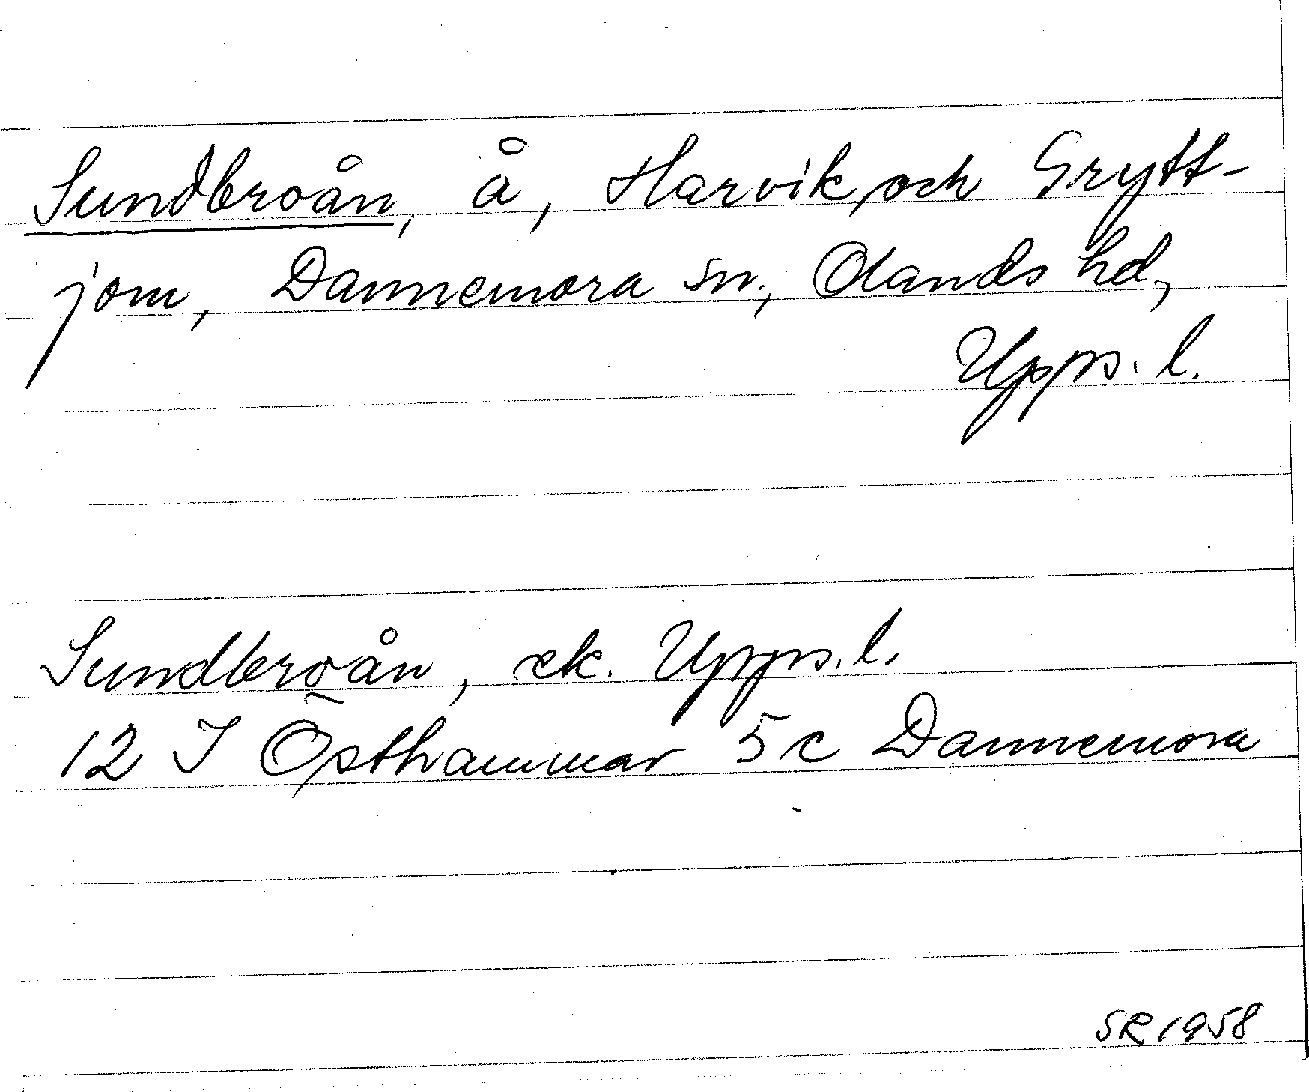 Sundbroån, å, Harvik och Grytt-
jom, Dannemora sn., Olands hd,
Upps. l.
Sundbroån, ek. Upps. l.
12 I Östhammar 5c Dannemora
SR 1958